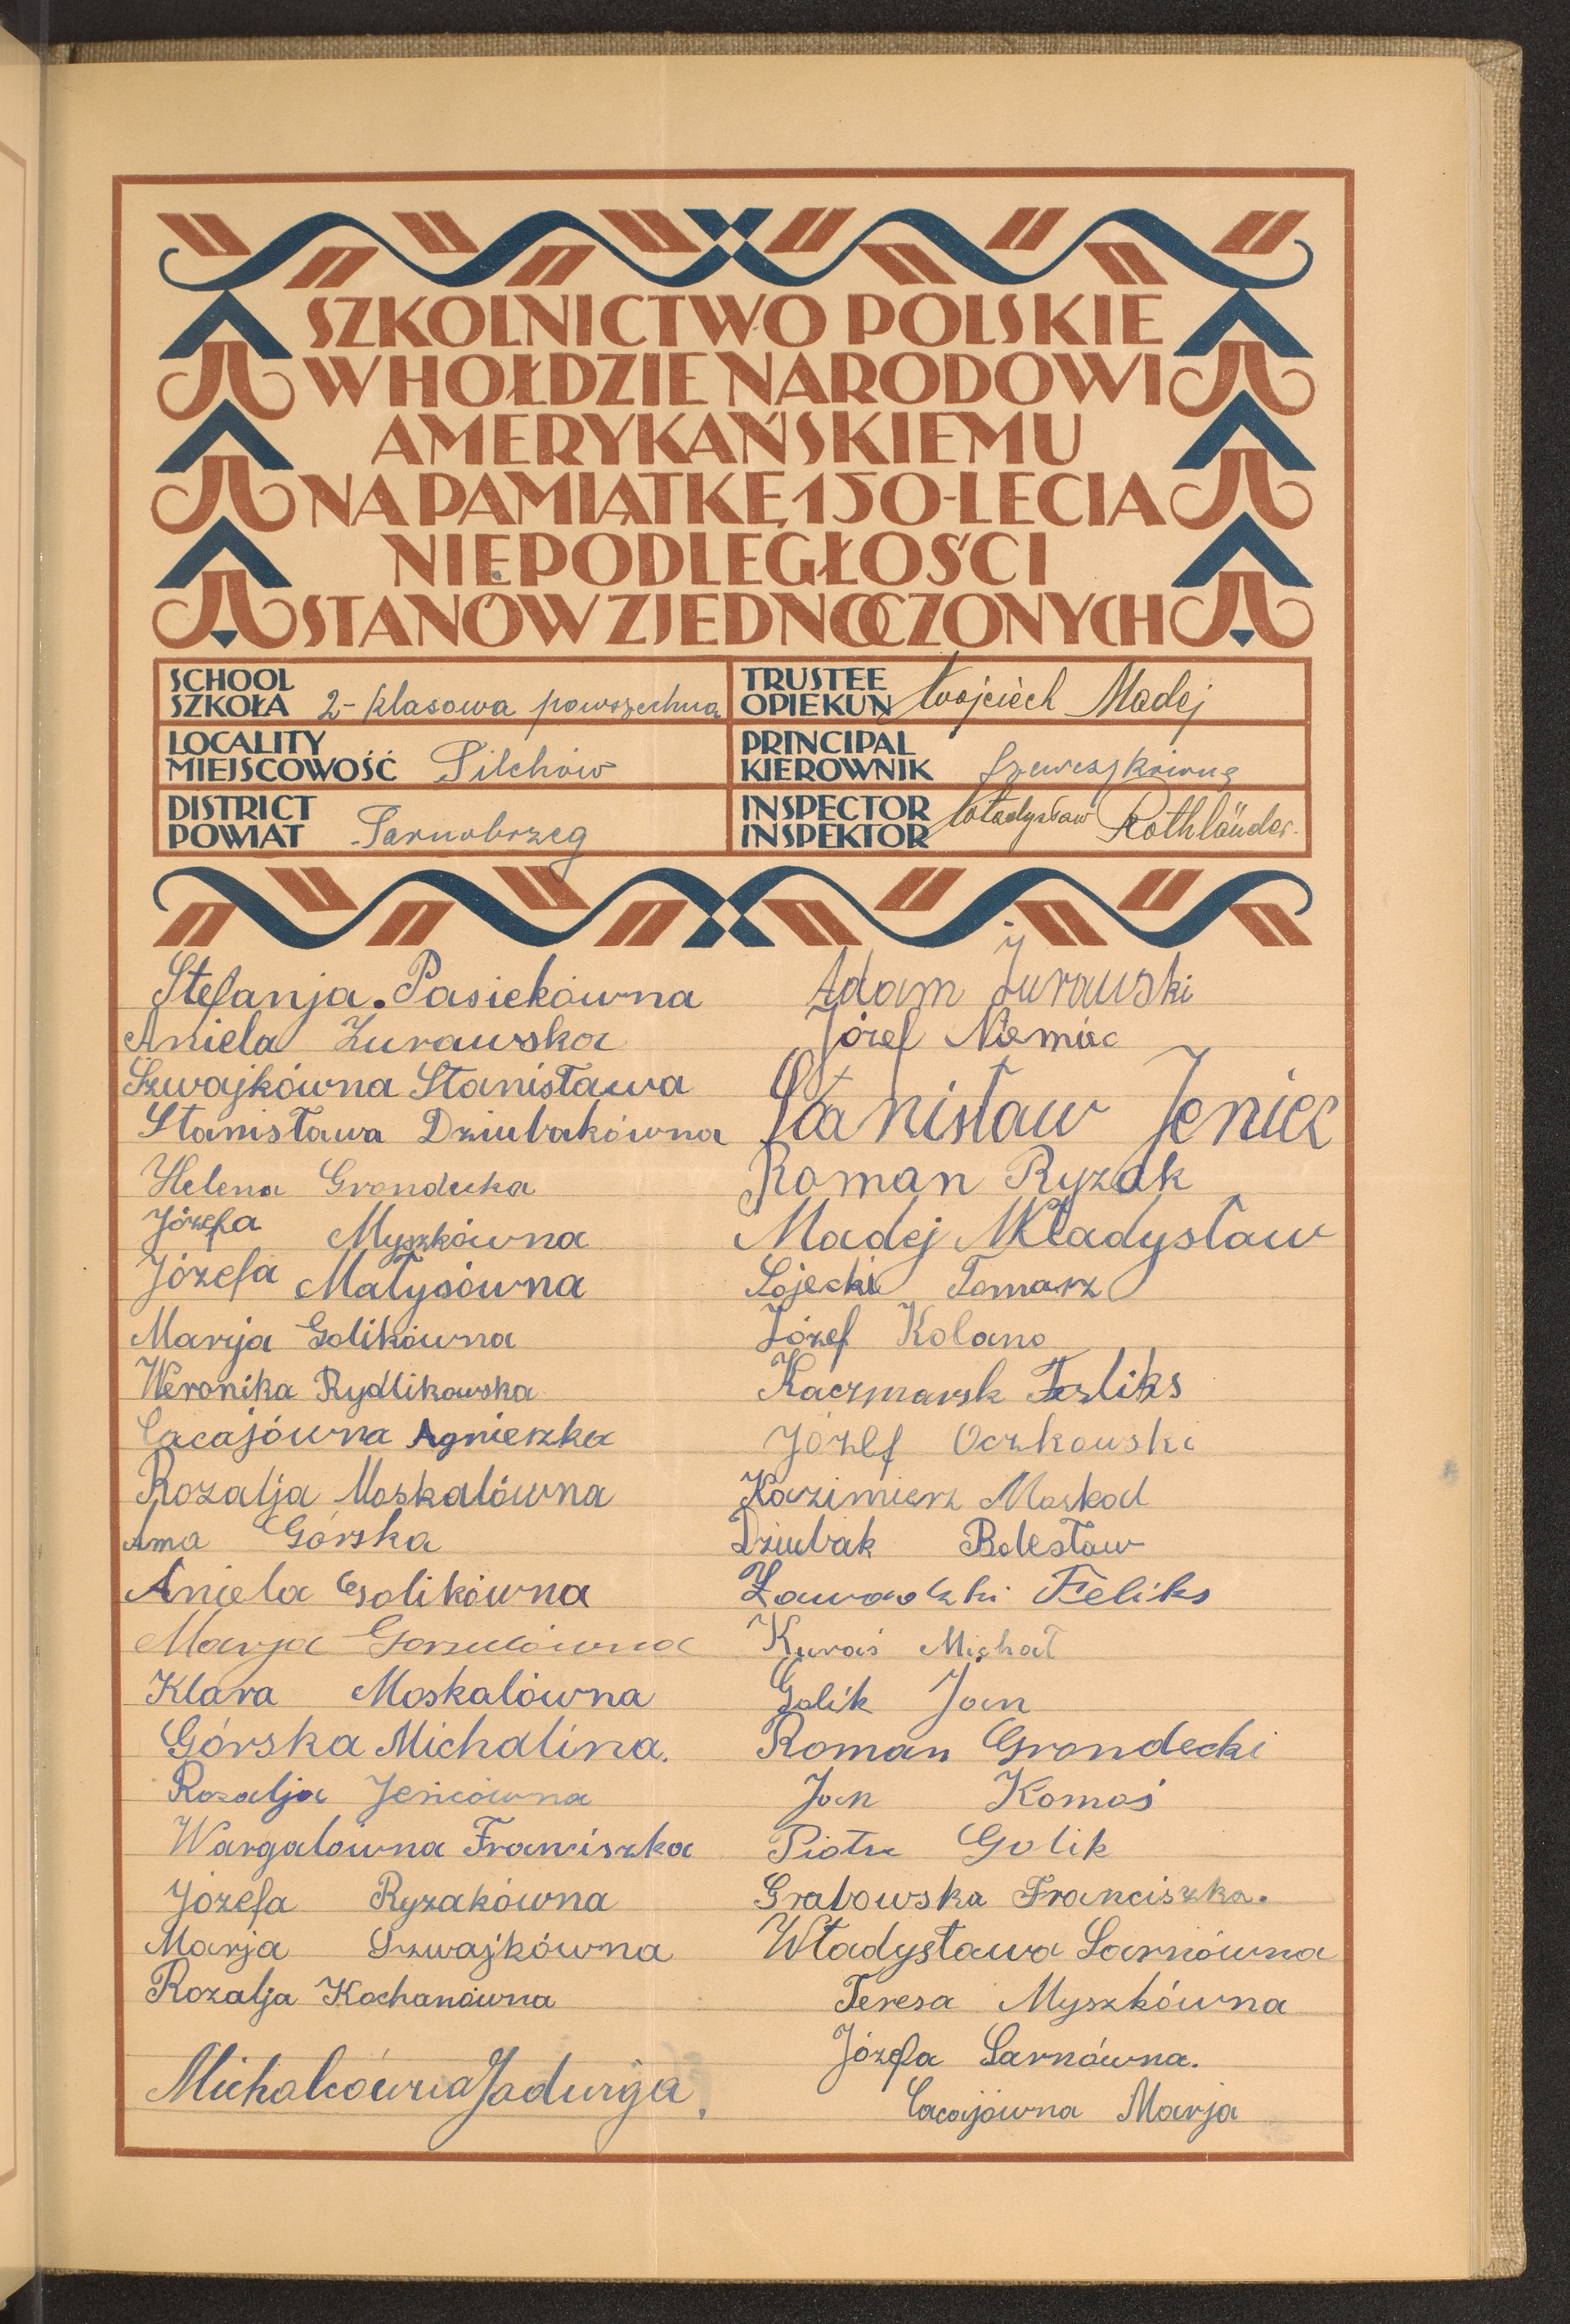 SZKOLNICTWO POLSKIE
W HOŁDZIE NARODOWI
AMERYKAŃSKIEMU
NA PAMIĄTKĘ 150-LECIA
NIEPODLEGŁOŚCI
STANÓW ZJEDNOCZONYCH
SCHOOL
SZKOŁA 2-klasowa powszechna
TRUSTEE
OPIEKUN Wojciech Madej
LOCALITY
MIEJSCOWOŚĆ Pilchów
PRINCIPAL
KIEROWNIK
DISTRICT
POWIAT Tarnobrzeg
INSPECTOR
INSPEKTOR Władysław Rothländer.
Stefanja Pasiekówna
Aniela Żurawska
Szwajkówna Stanisława
Stanisława Dziubakówna
Helena Grondecka
Józefa Myszkówna
Józefa Małysówna
Marija Golikówna
Weronika Rydlikowska
Cacajówna Agnieszka
Rozalja Moskalówna
Anna Górska
Aniela Golikówna
Marja
Klara Moskalówna
Górska Michalina.
Rozalja Jeńcówna
Wargalówna Franciszka
Józefa Ryzakówna
Marja Szwajkówna
Rozalja Kochanówna
Michalcówna Jadwiga.
Adam Żurawski
Józef Niemiec
Stanisław Jeniec
Roman Ryzak
Madej Władysław
Łojecki Tomasz
Józef Kolano
Kaczmarek Feliks
Józef Oczkowski
Kazimierz Moskal
Dziubak Bolesław
Zawadzki Feliks
Kuraś Michał
Golik Jan
Roman Grondecki
Jan Komoś
Piotr Golik
Grabowska Franciszka.
Władysława Sarnówna
Teresa Myszkówna
Józefa Sarnówna.
Cacajówna Marja